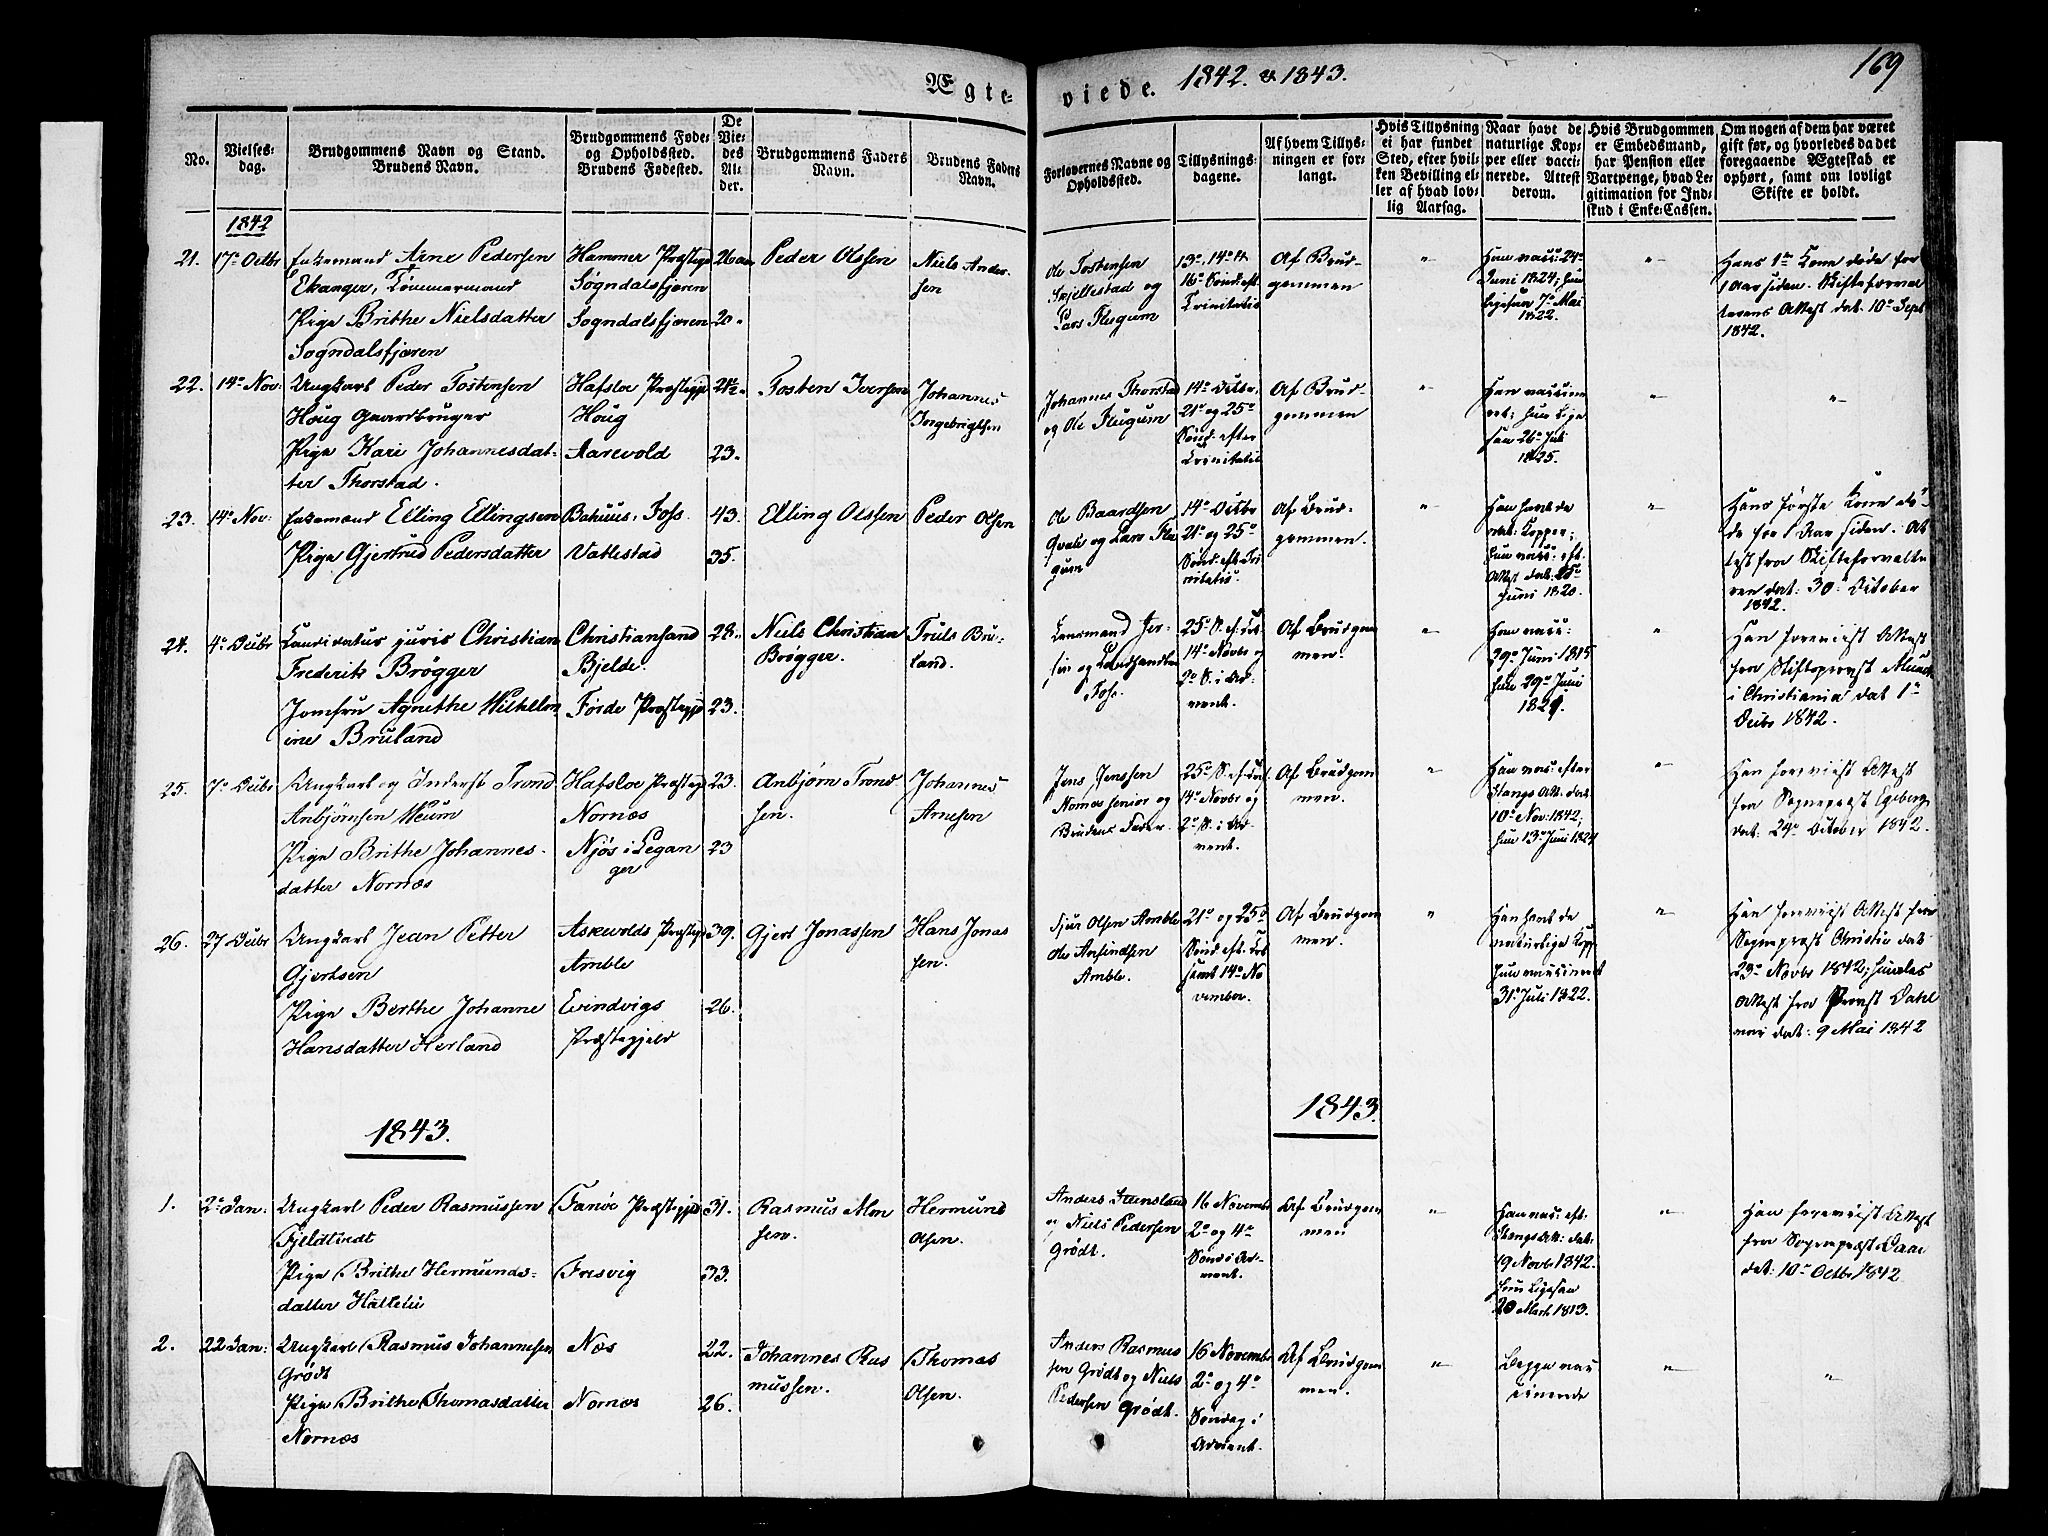 Ægte-
viede. 1842. & 1843.
169
No.
Vielses-
dag.
Brudgommens Navn og Stand.
Brudens Navn.
Brudgommens Føde-
og Opholdssted.
Brudens Fødested.
De
Vie-
des
Al-
der.
Brudgommens Faders
Navn.
Brudens Faders
Navn.
Forlovernes Navne og
Opholdssted.
Tillysnings-
dagene.
Af hvem Tillys-
ningen er for-
langt.
Hvis Tillysning
ei har fundet
Sted, efter hvil-
ken Bevilling el-
ler af hvad lov-
lig Aarsag.
Naar havt de
naturlige Kop-
per eller vacci-
nerede. Attest
derom.
Hvis Brudgommen
er Embedsmand,
har Pension eller
Vartpenge, hvad Le-
gitimation for Ind-
skud i Enke-Cassen.
Om nogen af dem har været
gift før, og hvorledes da det
foregaaende Ægteskab er
ophørt, samt om lovligt
Skifte er holdt.
1842
21.
17de Octbr
Enkemand Arne Pedersen
Ekanger, Tømmermand
Pige Brithe Nielsdatter
Sogndalsfjæren
Hammer Præstegj
Sogndalsfjæren
Sogndalsfjæren
26 aar
20
Peder Olssen
Niels Ander-
sen
Ole Tostensen
Skjellestad og
Lars Flugum
13de, 14de &
16de Sønd: eft.
Trinitatis
Af Brud-
gommen
"
Han vacc: 24de
Juni 1824; hun
ligesaa 7de Mai
1822.
"
Hans 1ste Kone døde for
1 Aar siden. Skifteforval
terens Attest dat. 10de Sept
1842.
22.
14de Nov:
Ungkarl Peder Tostensen
Houg Gaardbruger
Pige Kari Johannesdat-
ter Thorstad.
Hafsloe Præstegjd
Houg
Aarevold
21½
23.
Tosten Iversen
Johannes
Ingebrigtsen
Johannes Thorstad
og Ole Flugum
14de Octbr.
21de og 25de
Sønd: efter
Trinitatis
Af Brud-
gommen
"
Han vaccine
ret; hun lige
saa 26de Juli
1825.
"
"
23.
14de Nov:
Enkemand Elling Ellingsen
Pige Gjertrud Pedersdatter
Bahuus, Foss.
Vatlestad
43.
35.
Elling Olssen
Peder Olsen
Ole Baardsen
Qvale og Lars Flu
gum
14de Octbr
21de og 25de
Sønd: eft. Tri
nitatis.
Af Brud-
gommen.
"
Han havt de
nat: Kopper;
hun vacc: eft.
Attest dat: 25de
Juni 1820.
"
Hans første Kone dø-
de for 1 Aar siden. At
test fra Skifteforvalte
ren dat: 30. October
1842.
24.
4de Decbr
Candidatus juris Christian
Frederik Brøgger
Jomfru Agnethe Wilhelm
ine Bruland
Christiansand
Bjelde.
Førde Præstegjd
28.
23.
Niels Christian
Brøgger.
Truls Bru-
land.
Lensmand Jer-
sin og Landhandler
Foss.
25de S. ef. Tri.
14de Novbr og
2de S. i Ad-
vent.
Af Brudgom
men.
"
Han vacc:
29de Juni 1815
hun 29de Juni
1821.
"
Han foreviist Attest
fra Stiftsprovst Munch
i Christiania dat 1ste
Decbr 1842.
25.
7de Decbr
Ungkarl og Inderst Trond
Anbjørnsen Weum
Pige Brithe Johannes-
datter Nornæs
Hafsloe Præstegj
Nornæs
Njøs i Legan
ger
23.
23
Anbjørn Trond
sen.
Johannes
Arnesen
Jens Jenssen
Nornæs senior og
Brudens Fader.
25de S. ef. Tri.
14de Novbr og
2de S. i Ad-
vent.
Af Brudgom
men.
"
Han vac: efter
Stangs Att. dat
10de Nov: 1842;
hun 13de Juni 1824
"
Han foreviist Attest
fra Sognepræst Egeberg
dat: 24de October 1842.
26.
27 Decbr
Ungkarl Jean Petter
Gjertsen
Pige Berthe Johanne
Hansdatter Herland
Askevolds Præstegj
Amble
Evindvigs
Præstegjeld
39.
26.
Gjert Jonassen
Hans Jonas
sen.
Sjur Olsen Amble
Ole Ansindsen
Amble.
21de og 25de
Sønd eft. Tri
samt 14de No
vember.
Af Brudgom
men.
"
Han havt de
naturlige Kopp
hun vaccineret
31 Juli 1822.
"
Han foreviist Attest fra
Sognepræst Christie dat
23de Novbr 1842; hendes
Attest fra Provst Dahl
dat: 9 Mai 1842
1843.
1843.
1.
2de Jan:
Ungkarl Peder Rasmussen
Fjeldtvedt
Pige Brithe Hermunds-
datter Hatlelie
Fanøe Præstegjd
Fresvig
31.
33.
Rasmus Mon
sen.
Hermund
Olsen.
Anders Steensland
og Niels Pedersen
Grødt.
16 Novembr
2de og 4de
Sønd i Ad-
vent.
Af Brudgom
men
"
Han vac: eft.
Stangs Att: dat:
19 Novbr 1842.
hun ligesaa
20 Marts 1813.
"
Han foreviist Attest
fra Sognepræst Daae
dat: 10de Octbr 1842
2.
22 Jan:
Ungkarl Rasmus Johannesen
Grødt
Pige Brithe Thomasdatter
Nornæs
Næs
Nornæs
22.
26.
Johannes Ras
mussen.
Thomas
Olsen.
Anders Rasmus
sen Grødt og Niels
Pedersen Grødt.
16 Novembr
2de og 4de
Søndag i
Advent.
Af Brudgom
men.
"
Begge vac
cinerede
"
"